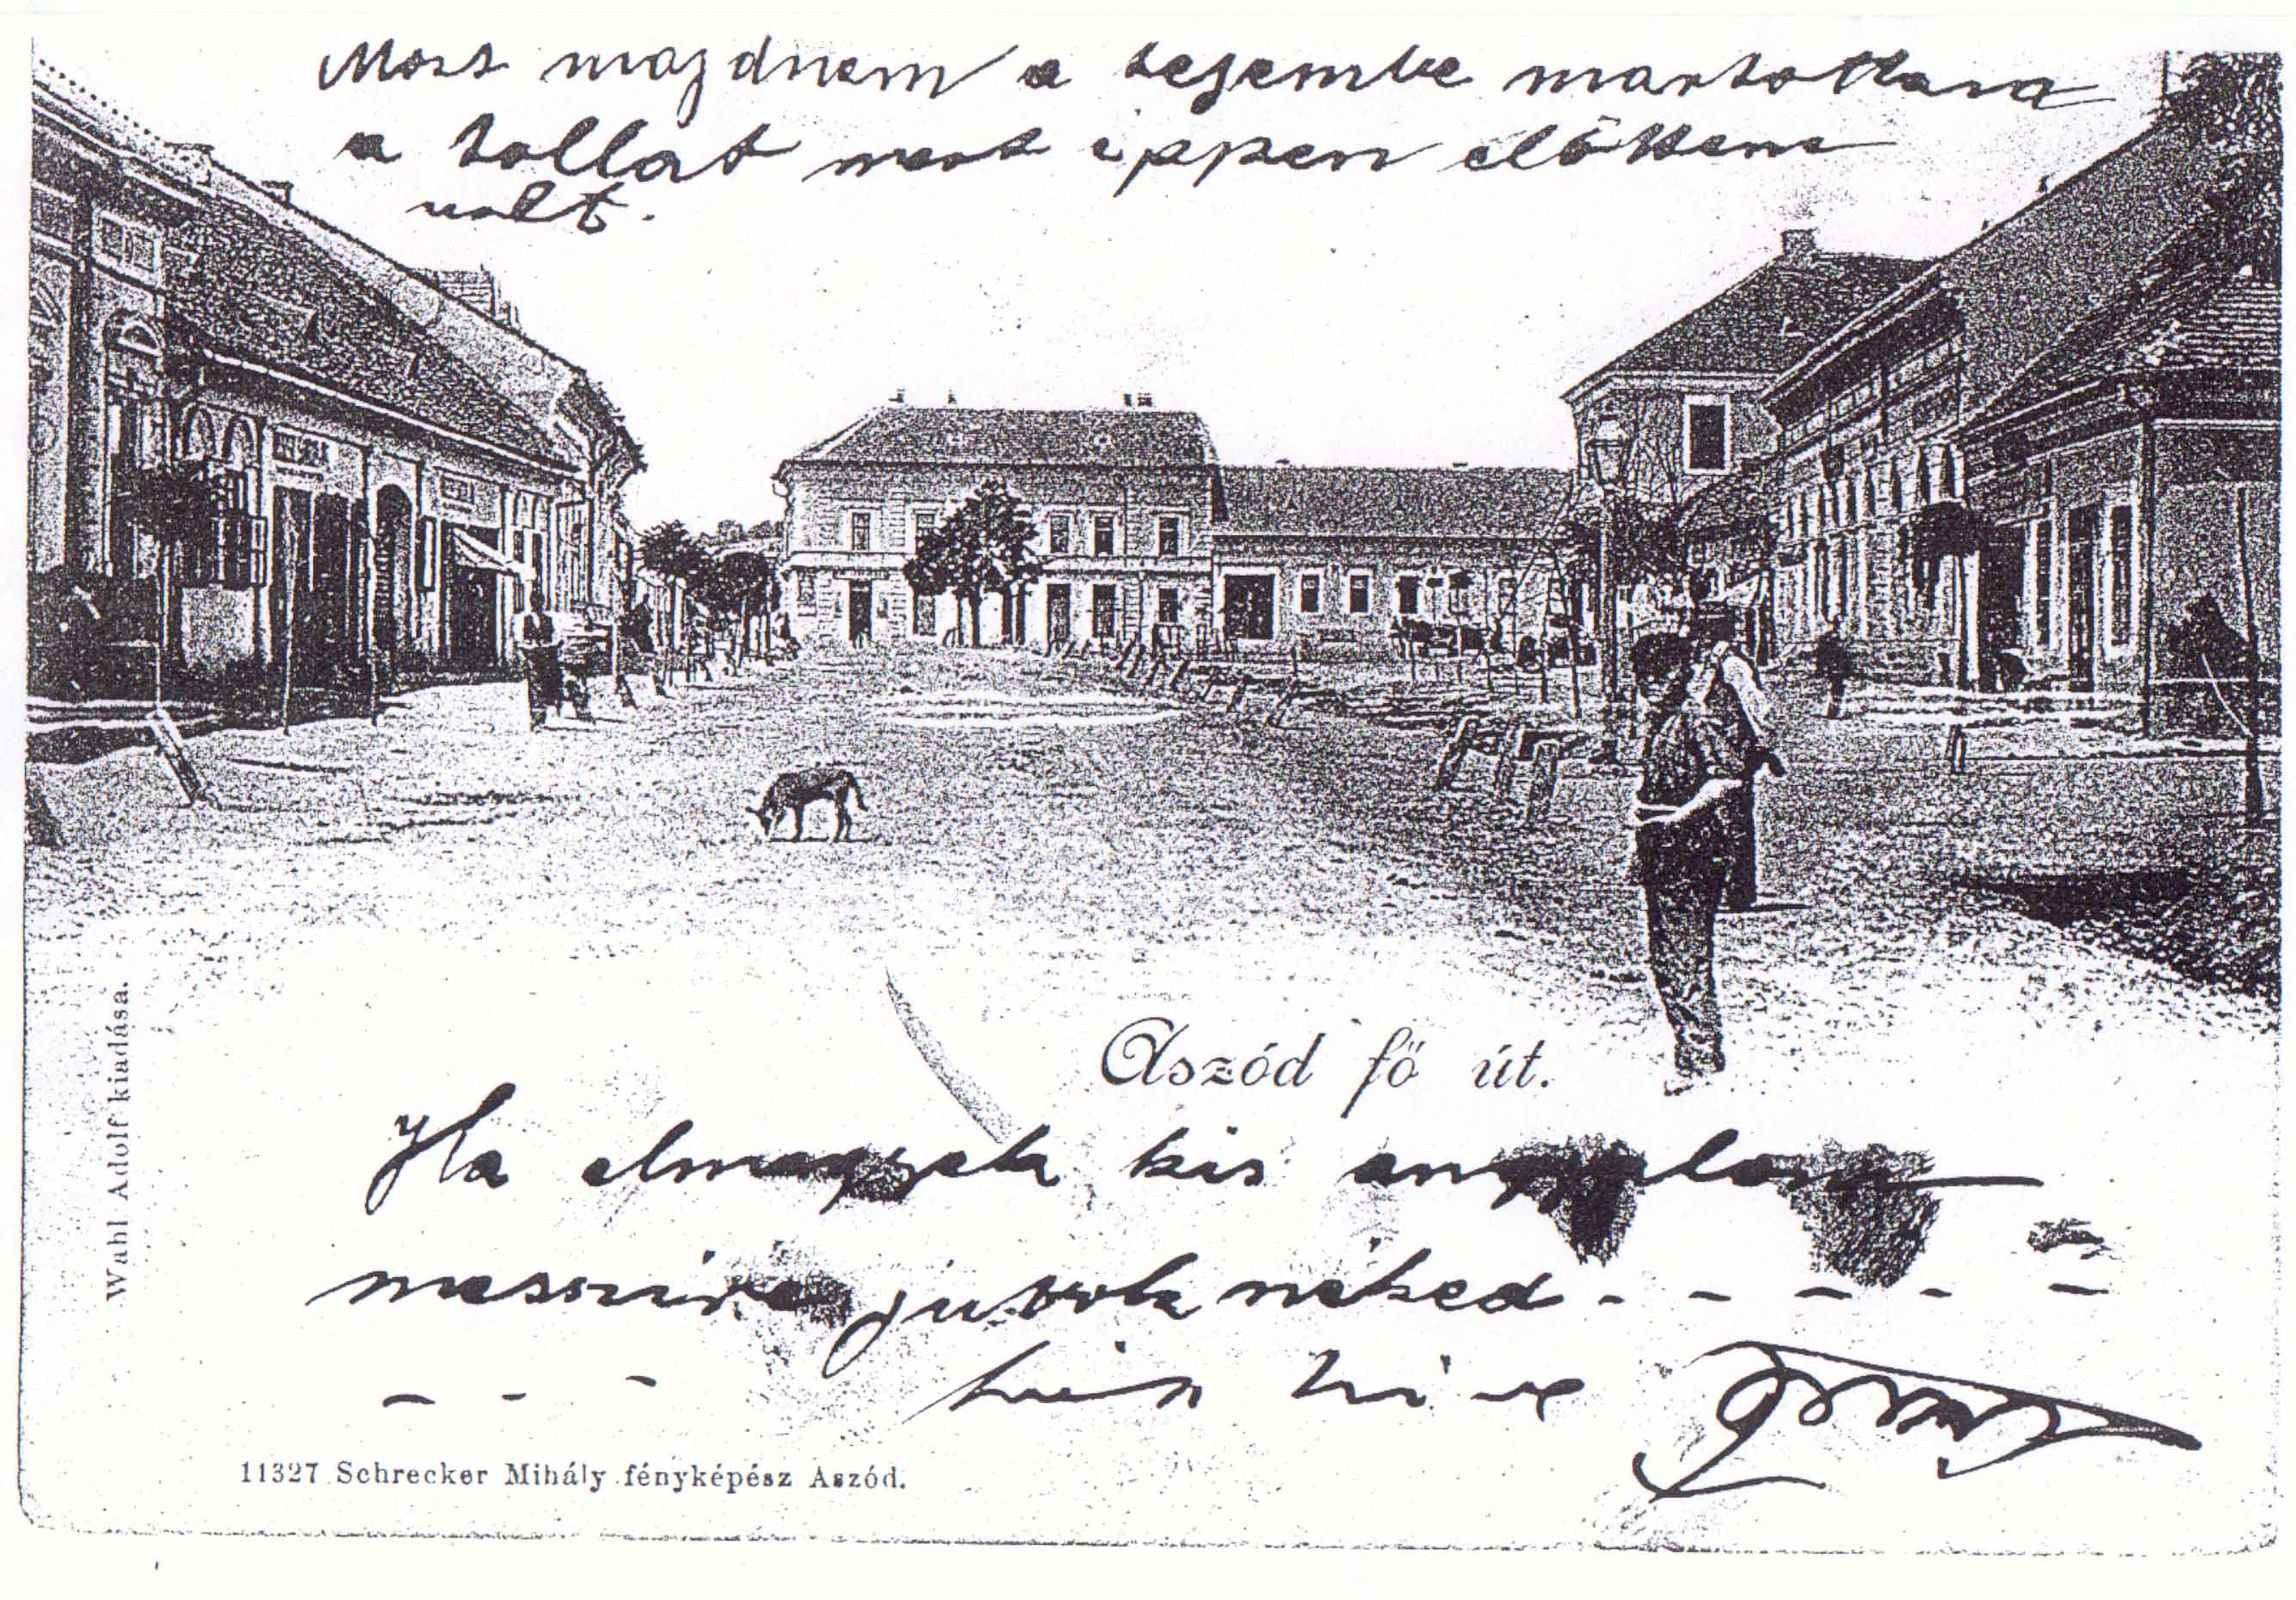 Most majdnem a tejembe martottam
a tollat mert éppen előttem
volt.
Aszód fő út.
Wahl Adolf kiadása.
Ha elmegyek kis angyalom
messzire jutok néked - - - - -
- - - hű
11327 Schrecker Mihály fényképész Aszód.